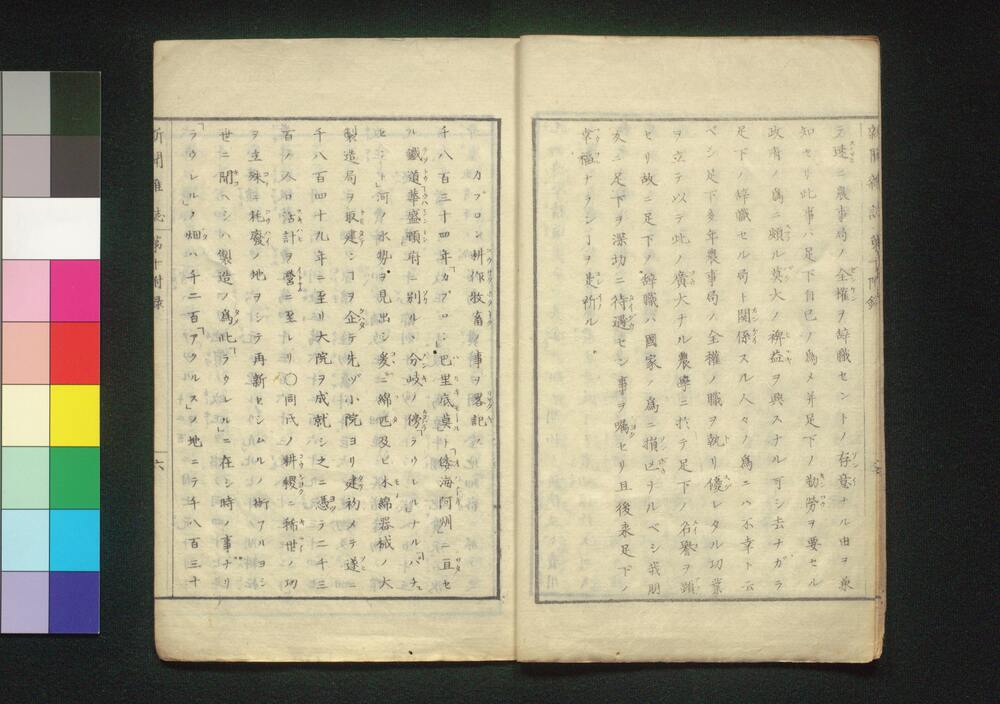 テ速ニ農事局ノ全權ヲ辞職セントノ存意ナル由ヲ兼
知セリ此事ハ足下自己ノ為メ并足下ノ勤労ヲ要セル
政府ノ為ニ頗ル莫大ノ裨益ヲ興スナル可シ去ナガラ
足下ノ辞職セル局ト關係スル人々ノ為ニハ不幸ト云
ベシ足下多年農事局ノ全權ノ職ヲ執リ優レタル功業
ヲ立テ以テ此ノ廣大ナル農學ニ於テ足下ノ名譽ヲ顕
セリ故ニ足下ノ辞職ハ國家ノ為ニ損亡ナルベシ我朋
友ニ足下ヲ深切ニ待遇セン事ヲ囑セリ且後来足下ノ
幸福ナランヿヲ是所ル
新聞雑誌 第十附録
カプロン耕作牧畜ノ事ヲ畧記ス
千八百三十四年「カプロン」巴里底莫ト「倭海阿州」ニ亘セ
ル鐵道華盛頓府ニ別ルヽ分岐ノ傍「ラウレルナル「パチュ
セント」河ノ水勢ヲ見出シ爰ニ綿匹及ビ木綿器械ノ大
製造局ヲ取建ンヿヲ企テ先ヅ小院ヨリ建初メテ遂ニ
千八百四十九年ニ至リ大院ヲ成就シ之ニ憑ラ二千三
百ノ人口活計ヲ營ニ至ルリ〇同氏ノ耕稷ニ稀世ノ功
ヲ立殊ニ耗廢ノ地ヲシテ再新セシムルノ術アルヨシ
世ニ聞ヘシハ製造ノ為此「ラウレル」ニ在シ時ノ事ナリ
「ラウレル」ノ畑ハ千二百「アクルス」ノ地ニテ千八百三十
新聞雑誌 第十附録 六